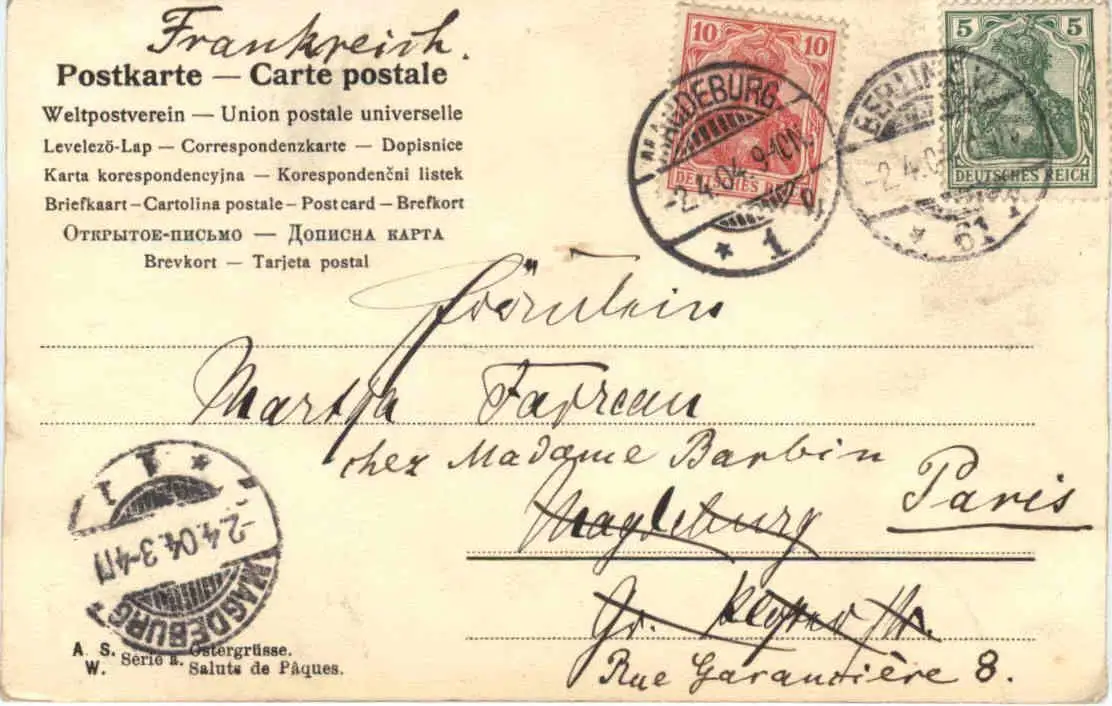 Frankreich.
Postkarte — Carte postale
Weltpostverein — Union postale universelle
Levelező-Lap — Correspondenzkarte — Dopisnice
Karta korespondencyjna — Korespondenční listek
Briefkaart — Cartolina postale — Post card — Brefkort
Открытое-письмо — Дописна карта
Brevkort — Tarjeta postal
10 10
DEUTSCHES REICH
5 5
DEUTSCHES REICH
MAGDEBURG
-2.4.04. 9-10N.
* 1
BERLIN
-2.4.0
* 61
Fräulein
Martha
chez Madame Barbin
Magdeburg
Paris
Gr.
Rue Garancière 8.
* 1
-2.4.04. 3-4N
MAGDEBURG
A. S. W. Serie a. Ostergrüsse.
Saluts de Pâques.